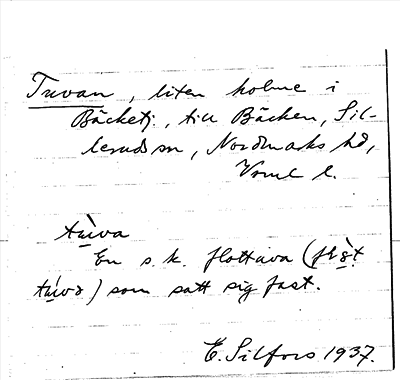 Tuvan, liten holme i
Bäcketj., till Bäcken, Sil-
leruds sn, Nordmarks hd,
Vrml l.
tùva
En s.k. flottuva (
) som satt sig fast.
E. Silfors 1937.